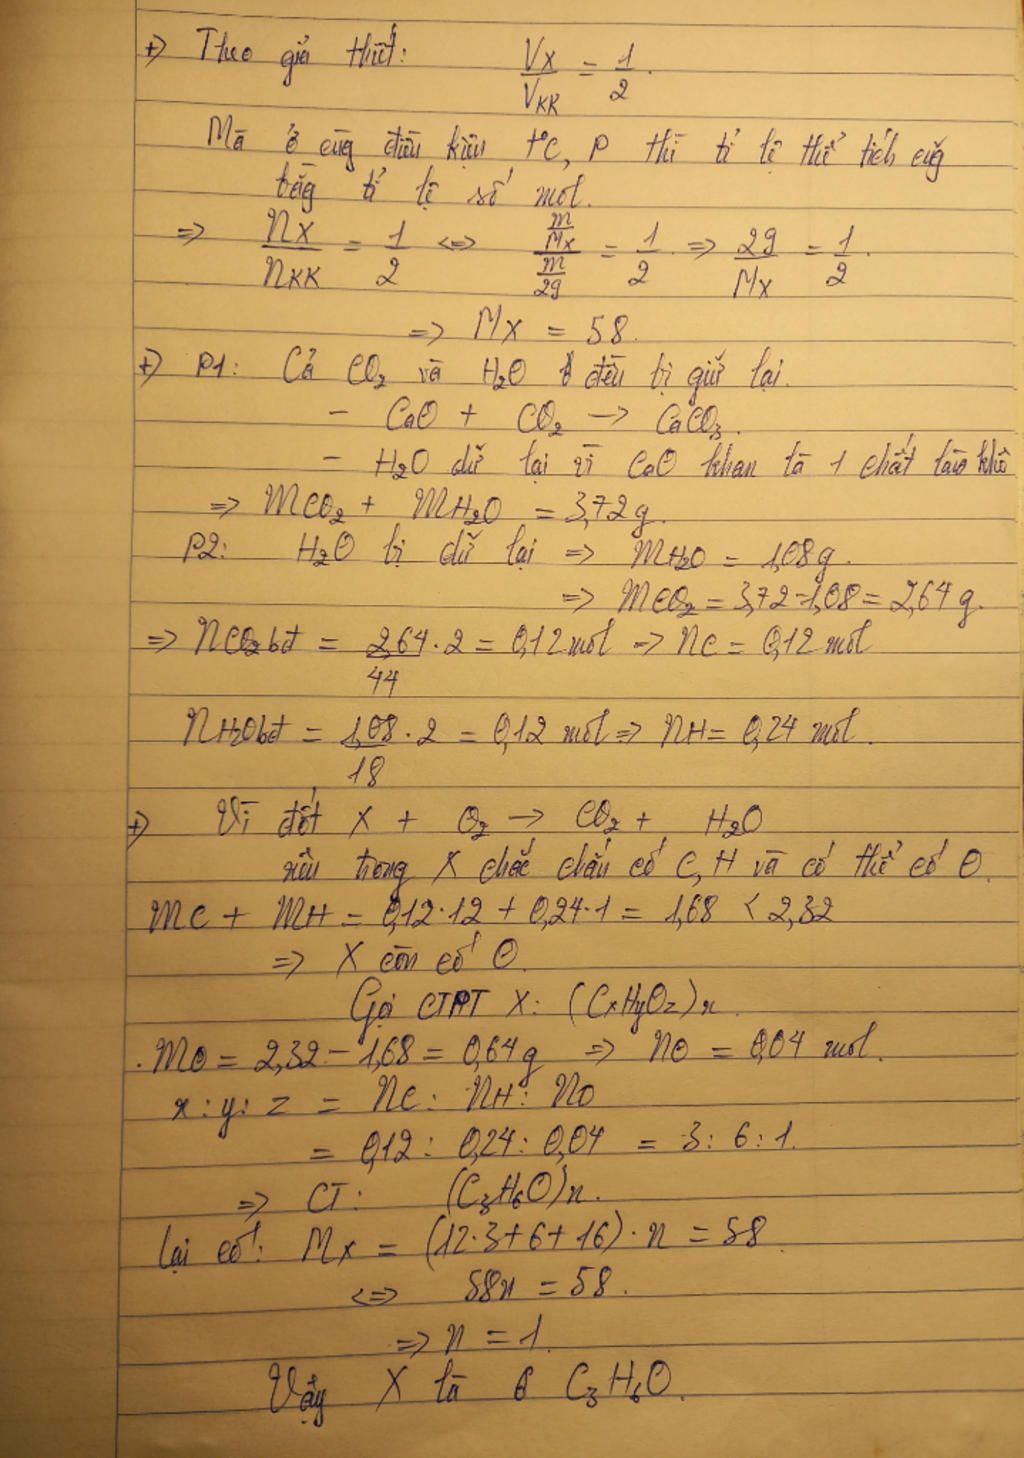 +) Theo giả thiết: Vx/VKK = 1/2.
Mà ở cùg điều kiện t°C, p thì tỉ lệ thể tích cũg
bằg tỉ lệ số mol.
=> nx/nKK = 1/2 <=> (m/Mx)/(m/29) = 1/2 => 29/Mx = 1/2.
=> Mx = 58.
+) P1: Cả CO₂ và H₂O đều bị giữ lại.
- CaO + CO₂ -> CaCO₃.
- H₂O dữ lại vì CaO khan là 1 chất làm khô
=> mCO₂ + mH₂O = 3,72g.
P2: H₂O bị dữ lại => mH₂O = 1,08g.
=> mCO₂ = 3,72-1,08 = 2,64g.
=> nCO₂bđ = 2,64/44 . 2 = 0,12 mol => nC = 0,12 mol
nH₂Obđ = 1,08/18 . 2 = 0,12 mol => nH = 0,24 mol.
+) Vì đốt X + O₂ -> CO₂ + H₂O
nên trong X chắc chắn có C, H và có thể có O.
mC + mH = 0,12.12 + 0,24.1 = 1,68 < 2,32
=> X còn có O.
Gọi CTPT X: (CxHyOz)n.
. mO = 2,32 - 1,68 = 0,64g => nO = 0,04 mol.
x : y : z = nC : nH : nO
= 0,12 : 0,24 : 0,04 = 3 : 6 : 1.
=> CT: (C₃H₆O)n.
lại có: Mx = (12.3+6+16).n = 58.
<=> 58n = 58.
=> n = 1.
Vậy X là C₃H₆O.